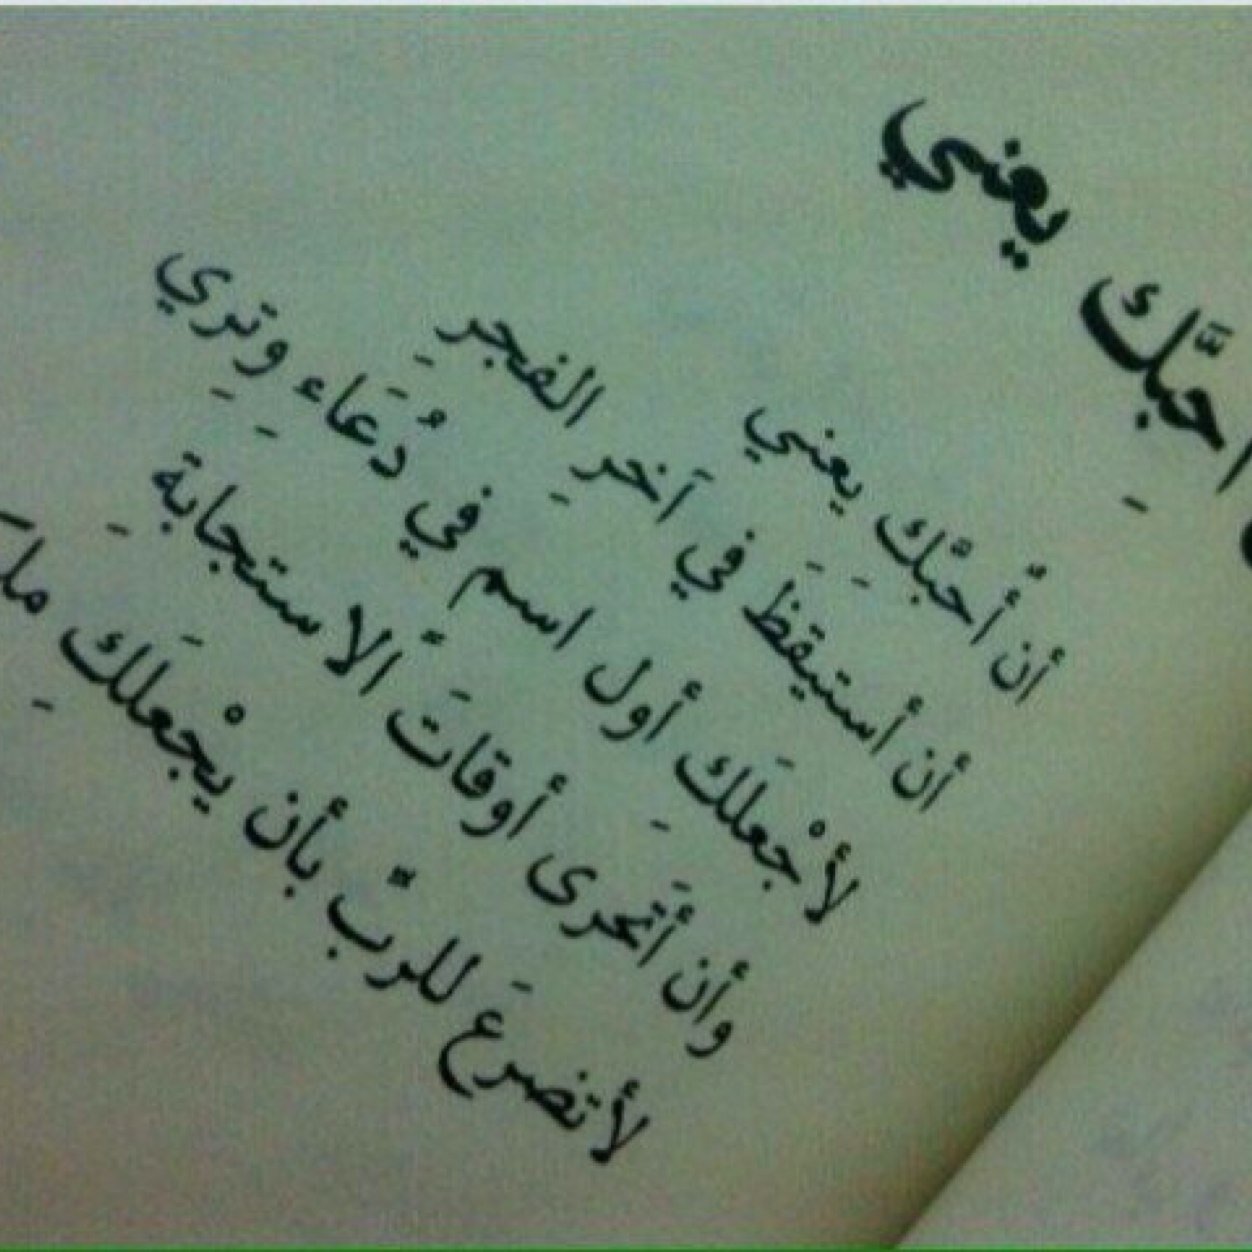 أحبَّكِ يعني
أن أُحبَّك يعني
أن أستيقظَ في آخرِ الفجرِ
لأجْعلَكِ أول اسم في دُعَاء وِترِي
وأن أتَحرى أوقاتَ الاستجابةِ
لأتضرعَ للربِّ بأن يجْعلَكِ